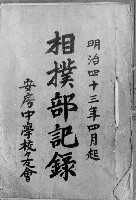 明治四十三年四月起
相撲部記録
安房中學校友會